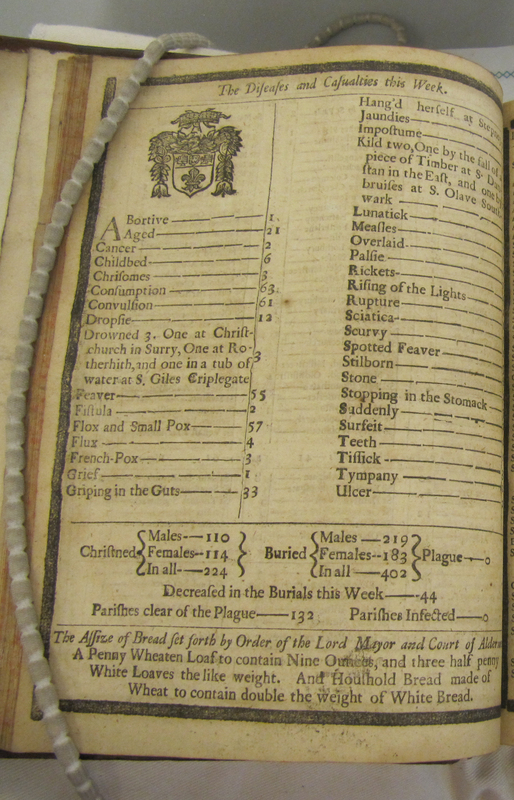 The Diseases and Casualties this Week.
Abortive 1
Aged 21
Cancer 2
Childbed 6
Chrisomes 3
Consumption 63
Convulsion 61
Dropsie 12
Drowned 3. One at Christ-
church in Surry, One at Ro-
therhith, and one in a tub of 3
water at S. Giles Criplegate
Feaver 55
Fistula 2
Flox and Small Pox 57
Flux 4
French-Pox 3
Grief 1
Griping in the Guts 33
Hang'd herself at
Jaundies
Impostume
Kild two, One by the fall of a
piece of Timber at S.
stan in the East, and one
bruises at S. Olave
wark
Lunatick
Measles
Overlaid
Palsie
Rickets
Rising of the Lights
Rupture
Sciatica
Scurvy
Spotted Feaver
Stilborn
Stone
Stopping in the Stomack
Suddenly
Surfeit
Teeth
Tissick
Tympany
Ulcer
Christned { Males 110 Females 114 In all 224 }
Buried { Males 219 Females 183 In all 402 } Plague 0
Decreased in the Burials this Week 44
Parishes clear of the Plague 132 Parishes Infected 0
The Assize of Bread set forth by Order of the Lord Mayor and Court of
A Penny Wheaten Loaf to contain Nine Ounces, and three half penny
White Loaves the like weight. And Houshold Bread made of
Wheat to contain double the weight of White Bread.